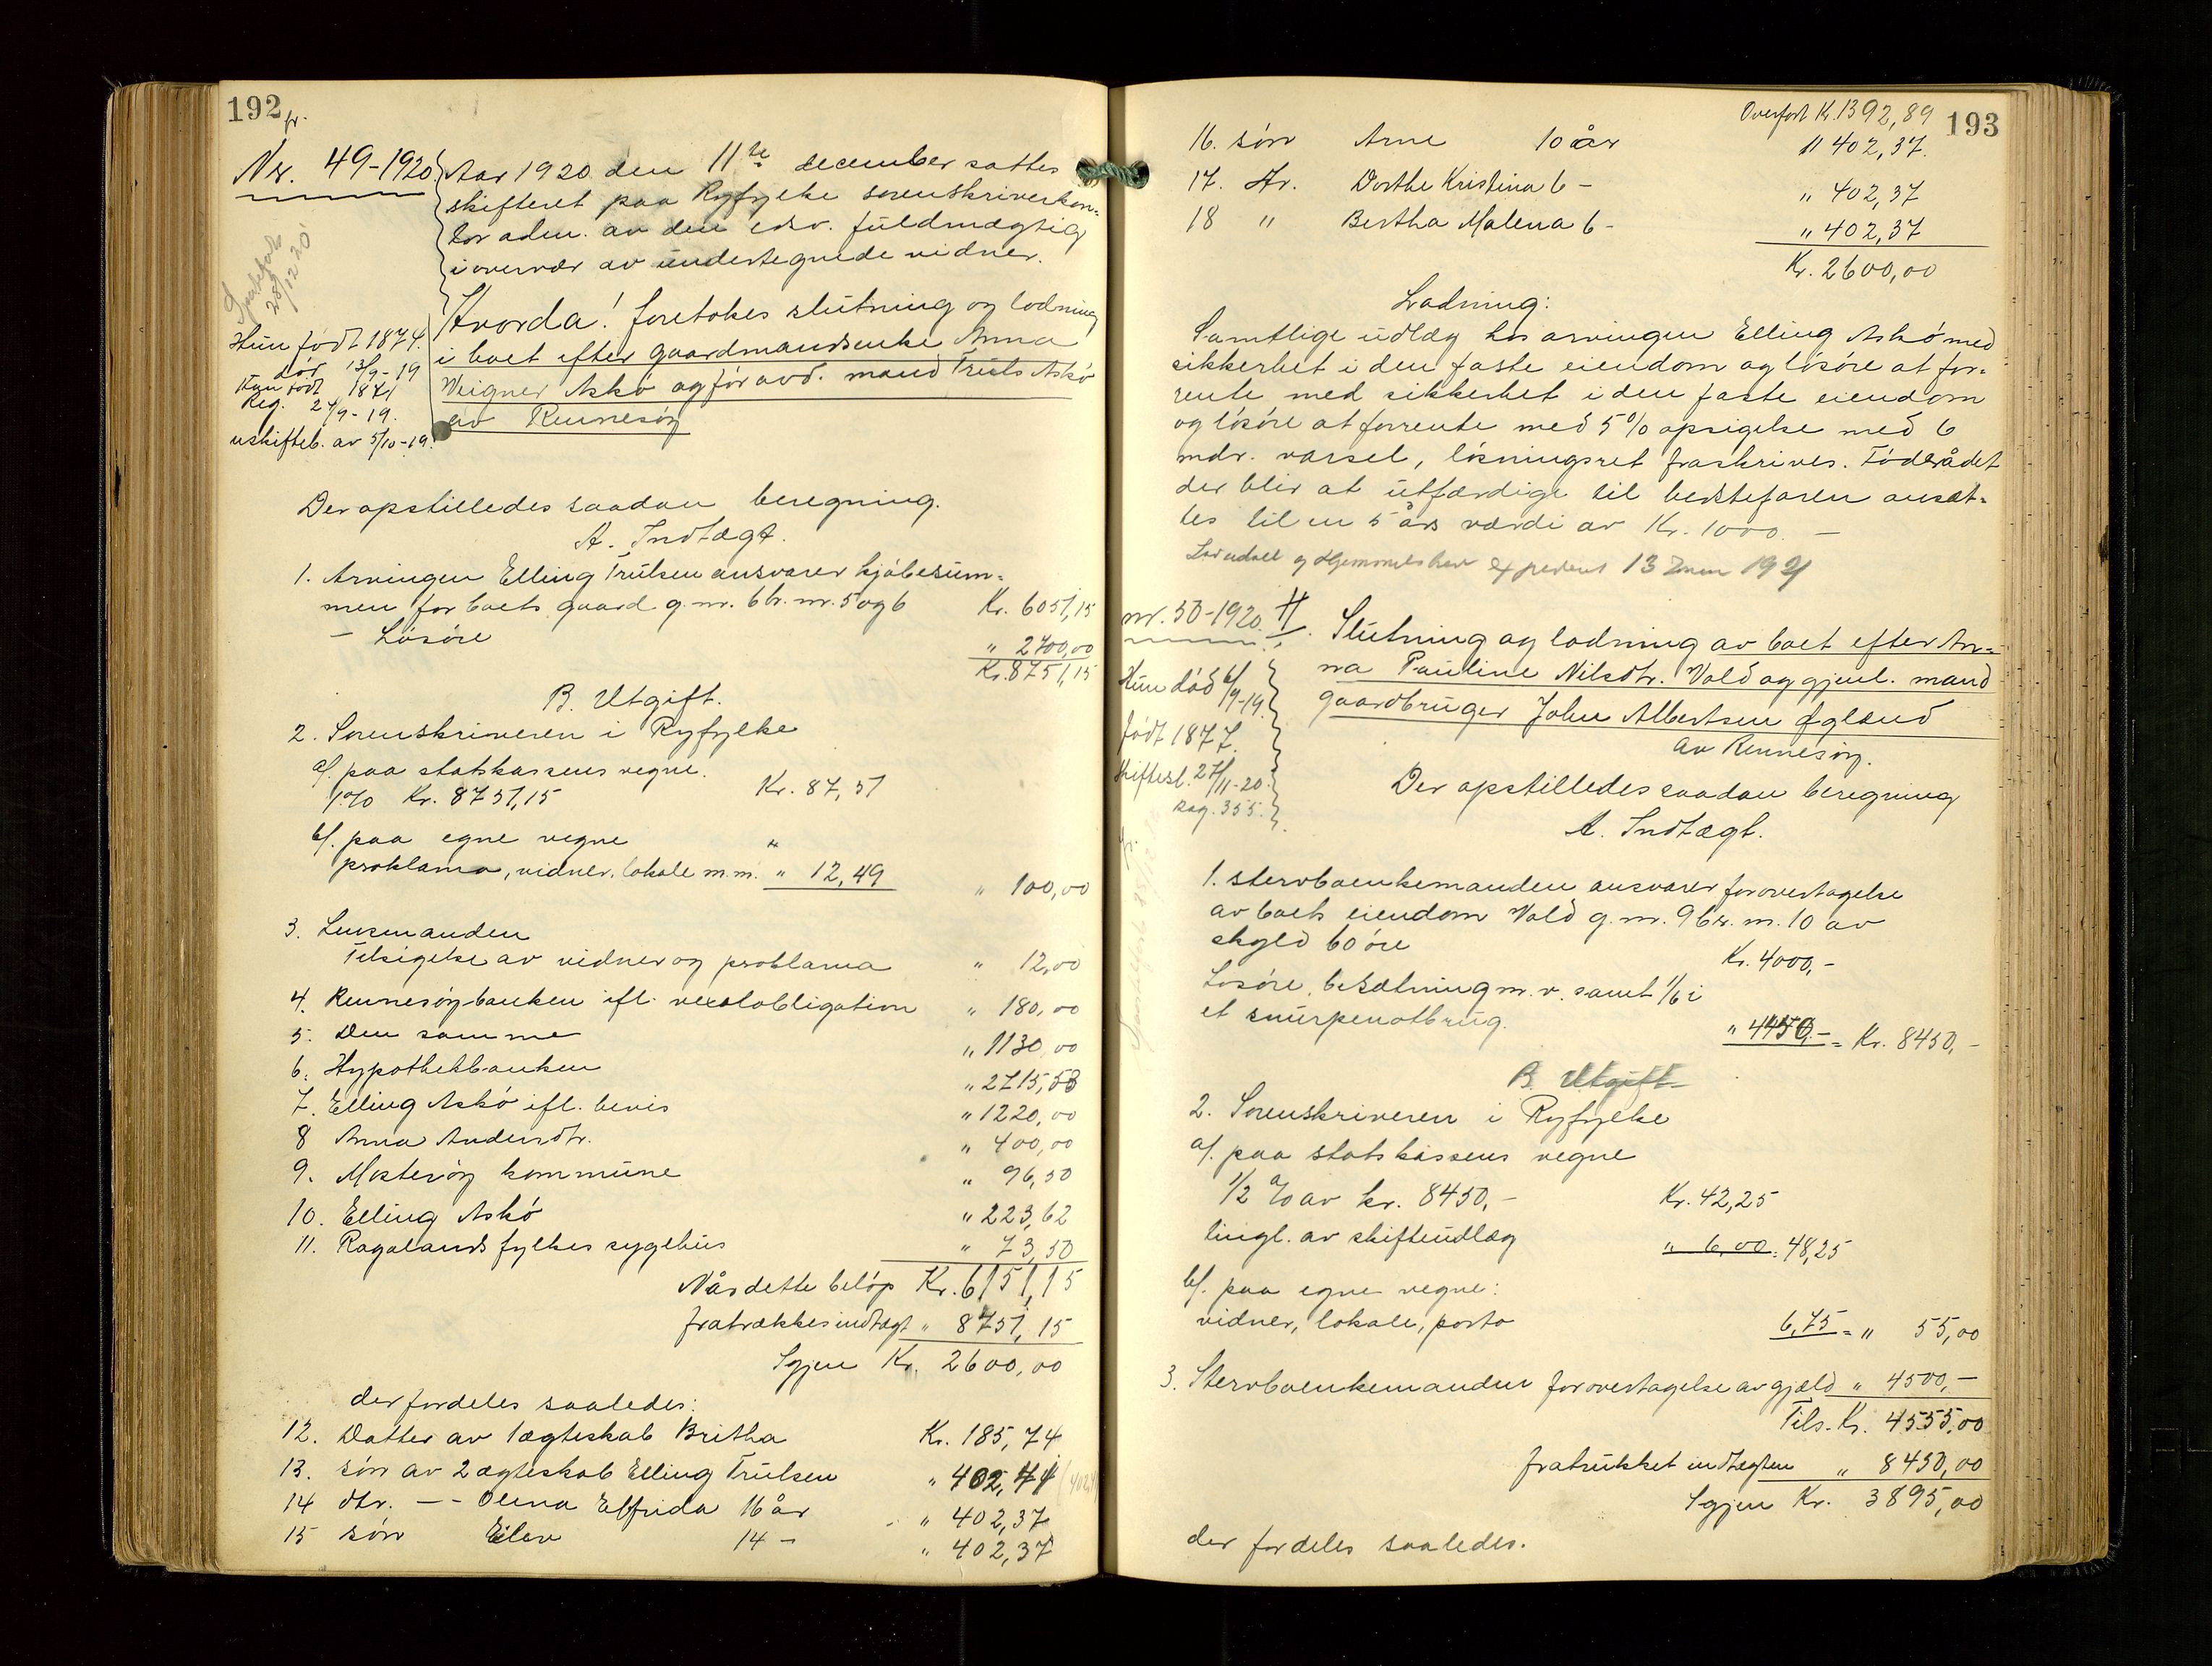 192
Nr. 49-1920.
Aar 1920 den 11te december sattes
skifteret paa Ryfylke sorenskriverkon-
tor adm. av den edsv. fuldmægtig
i overvær av undertegnede vidner.
28/12 20
Hvorda! foretokes slutning og lodning
i boet efter gaardmandsenke Anna
Veigner Askø og før avd. mand Truls Askø
av Rennesøy
Hun født 1874.
dør 13/9-19
Han født 1871
Reg. 27/9-19.
uskifteb. av 5/10-19.
Der opstilledes saadan beregning.
A. Indtægt.
1. Arvingen Elling Trulsen ansvarer kjøbesum-
men for boets gaard g.nr. 6 br. nr. 5 og 6 Kr. 6051,15
— Løsøre " 2700,00
Kr. 8751,15
B. Utgift.
2. Sorenskriveren i Ryfylke
a/. paa statskassens vegne.
1% Kr. 8751,15 Kr. 87,51
b/. paa egne vegne "
proklama, vidner, lokale m.m. " 12,49 " 100,00
3. Lensmanden
Tilsigelse av vidner og proklama " 12,00
4. Rennesøybanken ifl. vexelobligation " 180,00
5. Den samme " 1130,00
6. Hypothekbanken " 2715,53
7. Elling Askø ifl. bevis " 1220,00
8 Anna Andersdtr. " 400,00
9. Mosterøy kommune " 96,50
10. Elling Askø " 223,62
11. Rogalands fylkes sygehus " 73,50
Når dette beløp Kr. 6151,15
fratrækkes indtægt " 8751,15
Igjen Kr. 2600,00
der fordeles saaledes:
12. Datter av 1 ægteskab Britha Kr. 185,74
13. søn av 2 ægteskab Elling Trulsen " 402,41
14 dtr. — - Olena Elfrida 16 år " 402,37
15 søn Eilev 14 — " 402,37
193
Overført Kr. 1392,89
16. søn Arne 10 år " 402,37.
17. dtr. Dorthe Kristina 6 — " 402,37
18 " Bertha Malena 6 - " 402,37
Kr. 2600,00
Lodning:
Samtlige udlæg hos arvingen Elling Askø med
sikkerhet i den faste eiendom og løsøre at for-
rente med sikkerhet i den faste eiendom
og løsøre at forrente med 5% opsigelse med 6
mdr. varsel, løsningsret fraskrives. Føderådet
der blir at utfærdige til bedstefaren ansæt-
tes til en 5 års værdi av Kr. 1000. —
og Hjemmelsbrev expedert 13 1921
nr. 50-1920.
Slutning og lodning av boet efter An-
na Pauline Nilsdtr. Vold og gjenl. mand
gaardbruger John Albertsen Øgland
av Rennesøy.
Hun død 6/9-19.
født 1877.
skiftesl. 27/11-20.
Reg. 355.
Der opstilledes saadan beregning
A. Indtægt.
1. stervboenkemanden ansvarer for overtagelse
av boets eiendom Vold g.nr. 9 br. nr. 10 av
skyld 60 øre Kr. 4000,-
Løsøre, besætning m.v. samt 1/6 i
et snurpenotbrug. " 4450.- = Kr. 8450,-
B. Utgift
2. Sorenskriveren i Ryfylke
a/. paa statskassens vegne
1/2 % av kr. 8450,- Kr. 42,25
tingl. av skifteudlæg " 6,00 = 48,25
b/. paa egne vegne:
vidner, lokale, porto 6,75 = " 55,00
3. Stervboenkemanden for overtagelse av gjæld " 4500,-
Tils. Kr. 4555,00
fratrukket indtægten " 8450,00
Igjen Kr. 3895,00
der fordeles saaledes.